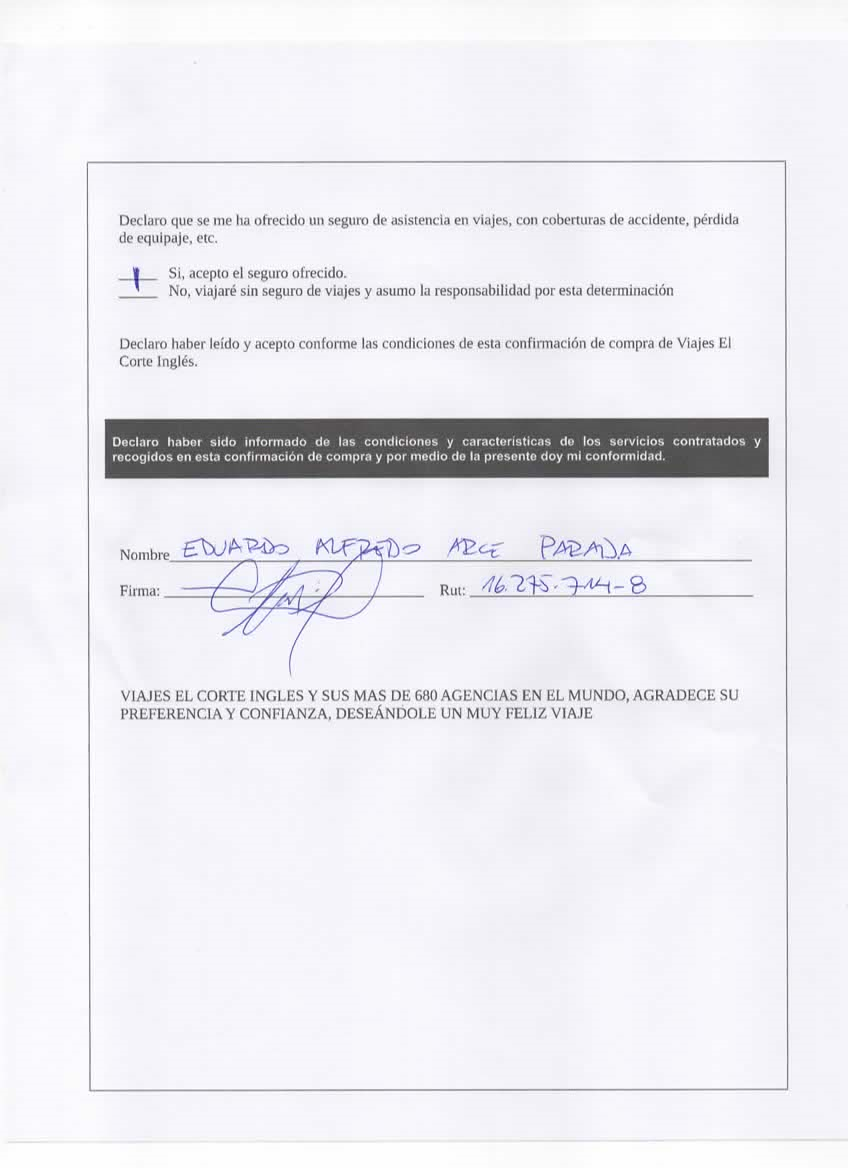 Declaro que se me ha ofrecido un seguro de asistencia en viajes, con coberturas de accidente, pérdida
de equipaje, etc.
Si, acepto el seguro ofrecido.
No, viajaré sin seguro de viajes y asumo la responsabilidad por esta determinación
Declaro haber leído y acepto conforme las condiciones de esta confirmación de compra de Viajes El
Corte Inglés.
Declaro haber sido informado de las condiciones y características de los servicios contratados y
recogidos en esta confirmación de compra y por medio de la presente doy mi conformidad.
Nombre EDUARDO ALFREDO ARCE PARADA
Firma: Rut: 16.275.714-8
VIAJES EL CORTE INGLES Y SUS MAS DE 680 AGENCIAS EN EL MUNDO, AGRADECE SU
PREFERENCIA Y CONFIANZA, DESEÁNDOLE UN MUY FELIZ VIAJE